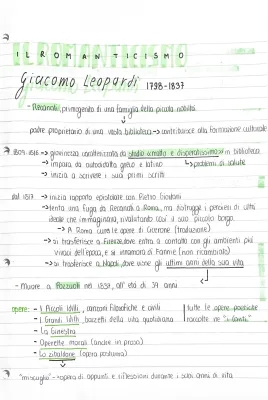 IL ROMANTICISMO
Giacomo Leopardi 1798-1837
- Recanati, primogenito di una famiglia della piccola nobiltà.
padre proprietario di una vasta biblioteca → contribuisce alla formazione culturale
1809-1816 → giovinezza caratterizzata da studio "matto e disperatissimo" in biblioteca
→ impara da autodidatta greco e latino → problemi di salute
→ inizia a scrivere i suoi primi scritti
dal 1817 → inizia rapporto epistolare con Pietro Giordani
→ tenta una fuga da Recanati a Roma, ma distrugge i pensieri di città
ideale che immaginava, rivalutando così il suo piccolo borgo.
→ A Roma cura le opere di Cicerone (traduzione)
→ si trasferisce a Firenze dove entra a contatto con gli ambienti più
vivaci dell'epoca, e si innamora di Fannie (non ricambiato)
→ si trasferisce a Napoli, dove vive gli ultimi anni della sua vita
- Muore a Pozzuoli nel 1837, all'età di 39 anni
opere: - I Piccoli Idilli, canzoni filosofiche e civili
- I Grandi Idilli, bozzetti della vita quotidiana
- La Ginestra
tutte le opere poetiche
raccolte ne "i Canti"
- Operette morali (anche in prosa)
- Lo zibaldone (opera postuma)
"miscuglio" → opera di appunti e riflessioni durante i suoi anni di vita